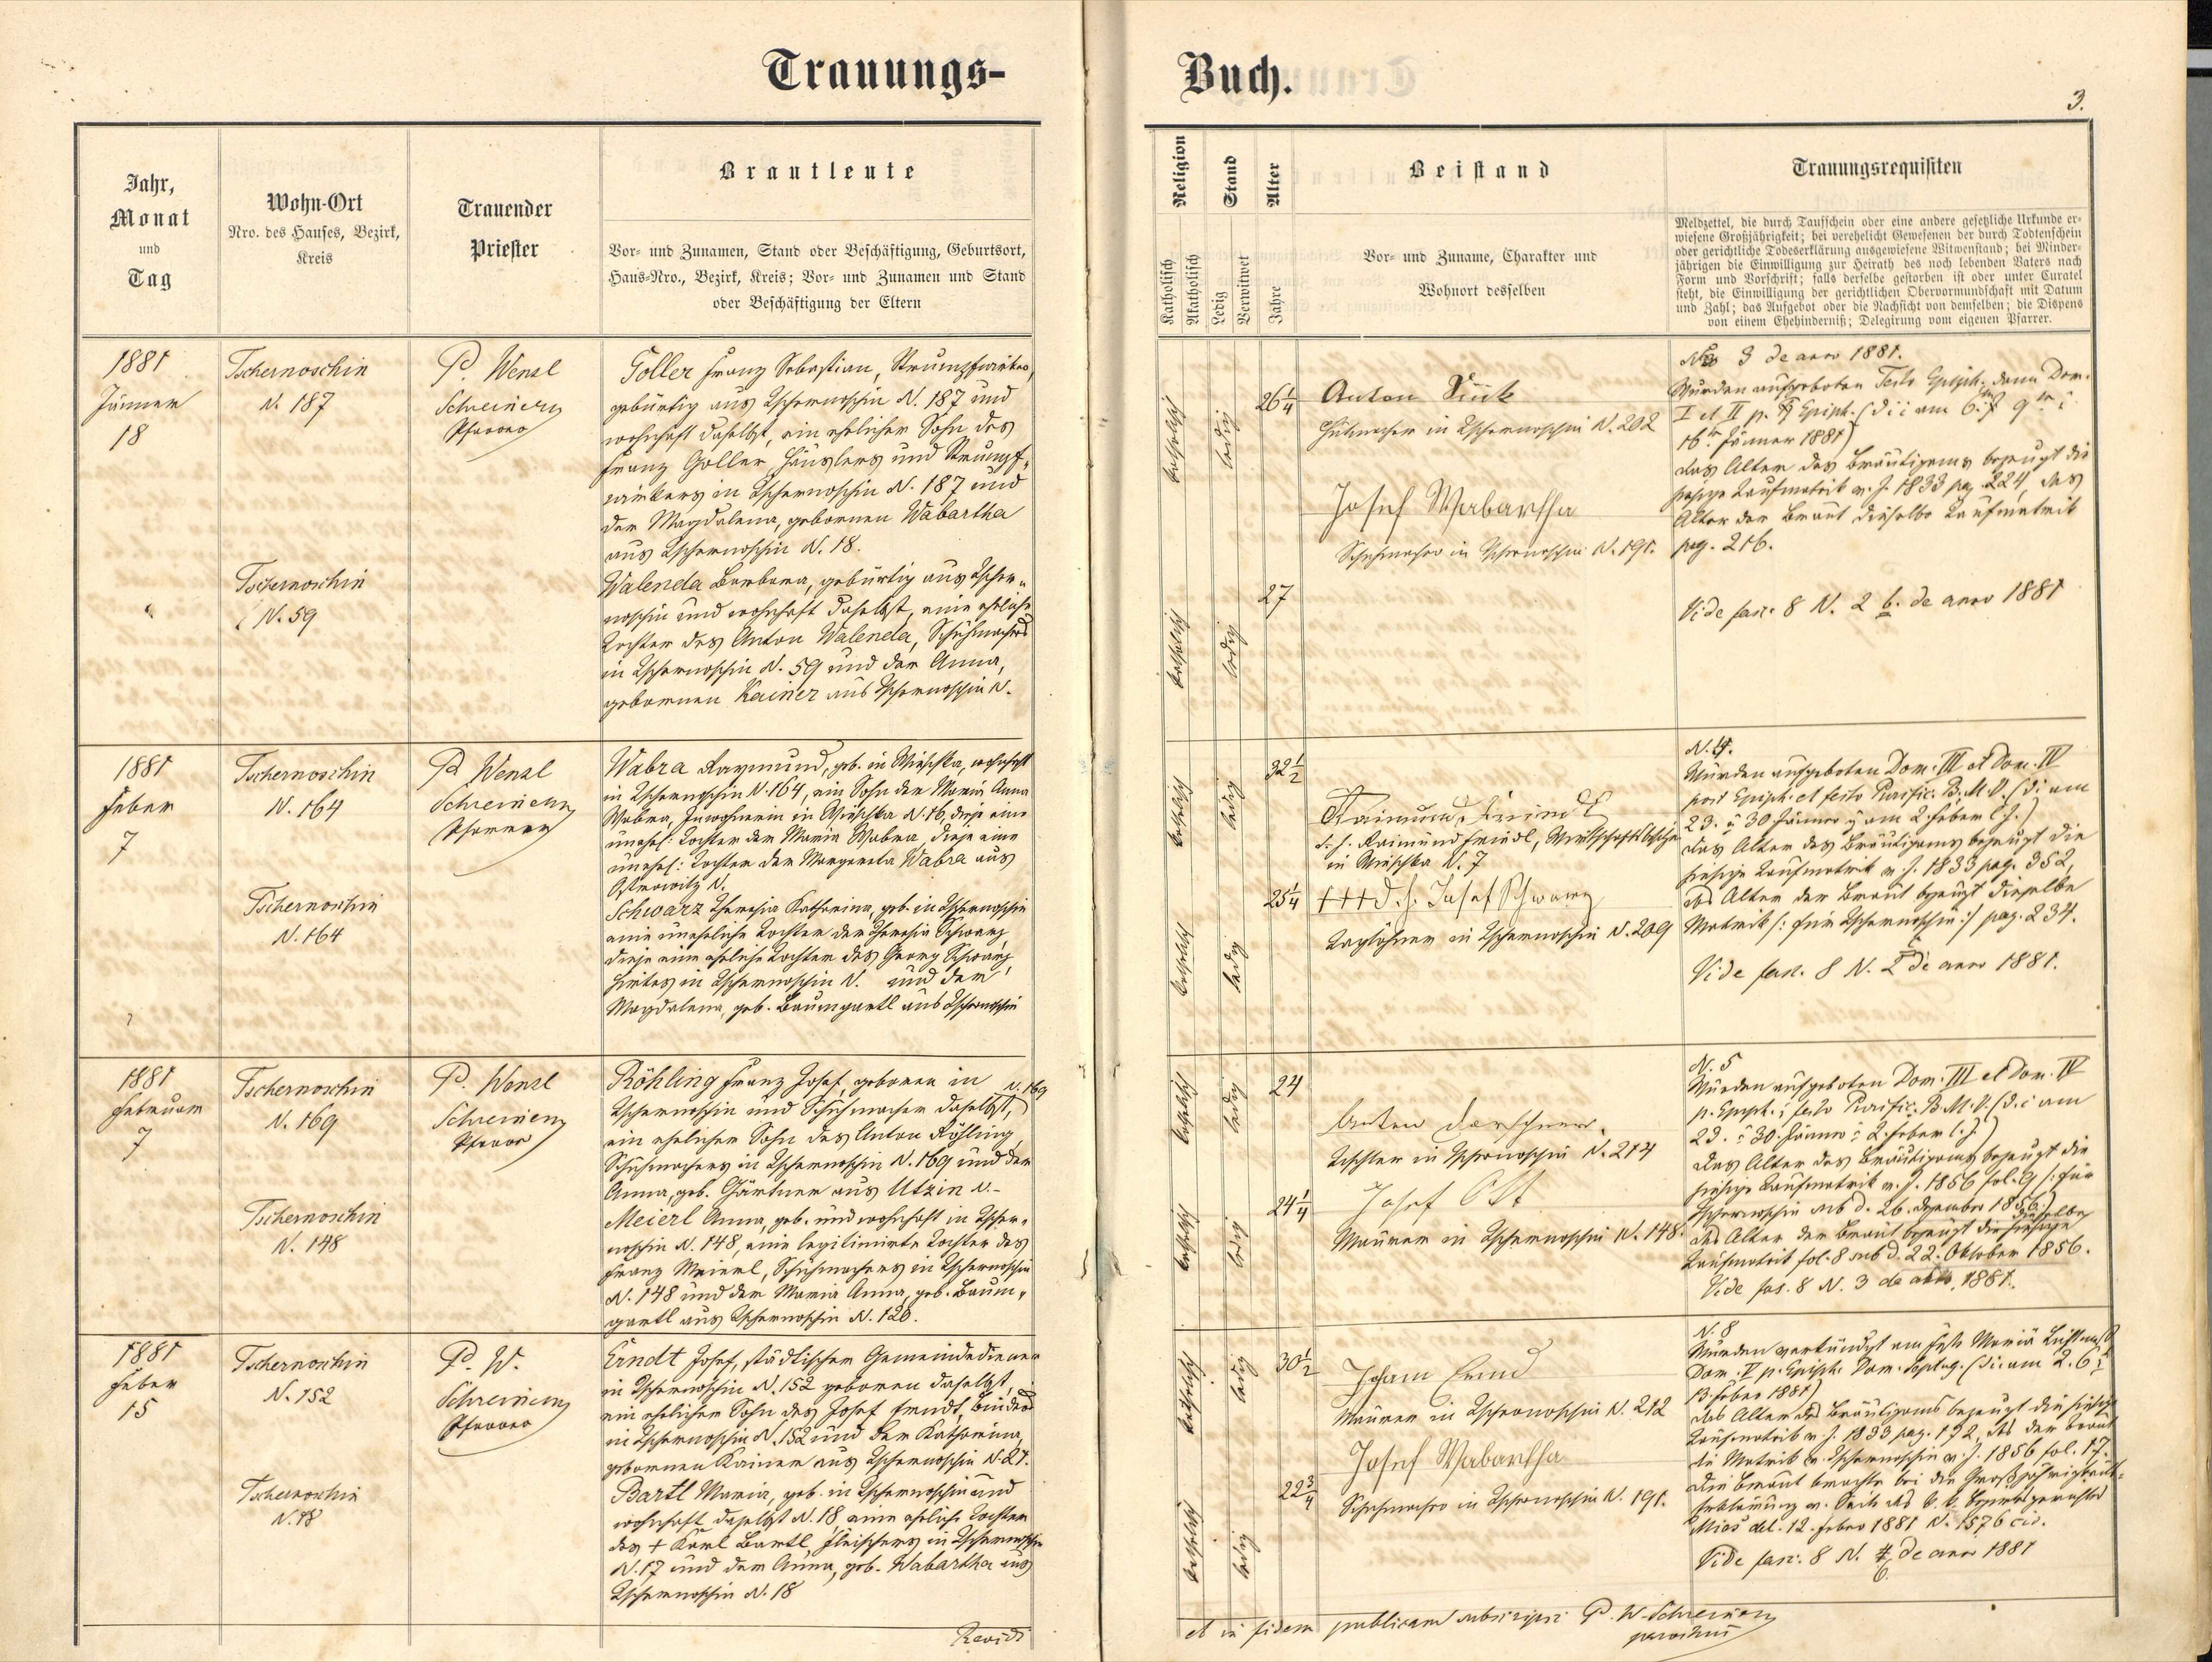 Trauungs-
Buch.
3.
Jahr,
Monat
und
Tag
Wohn-Ort
Nro. des Hauses, Bezirk,
Kreis
Trauender
Priester
Brautleute
Vor- und Zunamen, Stand oder Beschäftigung, Geburtsort,
Haus-Nro., Bezirk, Kreis; Vor- und Zunamen und Stand
oder Beschäftigung der Eltern
Religion
Katholisch
Akatholisch
Stand
Ledig
Verwitwet
Alter
Jahre
Beistand
Vor- und Zuname, Charakter und
Wohnort desselben
Trauungsrequisiten
Meldzettel, die durch Taufschein oder eine andere gesetzliche Urkunde er-
wiesene Großjährigkeit; bei verehelicht Gewesenen der durch Todtenschein
oder gerichtliche Todeserklärung ausgewiesene Witwenstand; bei Minder-
jährigen die Einwilligung zur Heirath des noch lebenden Vaters nach
Form und Vorschrift; falls derselbe gestorben ist oder unter Curatel
steht, die Einwilligung der gerichtlichen Obervormundschaft mit Datum
und Zahl; das Aufgebot oder die Nachsicht von demselben; die Dispens
von einem Ehehinderniß; Delegirung vom eigenen Pfarrer.
1881
Jänner
18
Tschernoschin
N. 187
P. Wenzl
Schreiner
Pfarrer
Goller Franz Sebastian, Strumpfwirker,
gebürtig aus Tschernoschin N. 187 und
wohnhaft daselbst, ein ehelicher Sohn des
Franz Goller, Häuslers und Strumpf-
wirkers in Tschernoschin N. 187 und
der Magdalena, gebornen Wabartha
aus Tschernoschin N. 18.
Tschernoschin
N. 59
Walenda Barbara, gebürtig aus Tscher-
noschin und wohnhaft daselbst, eine eheliche
Tochter des Anton Walenda, Schuhmachers
in Tschernoschin N. 59 und der Anna,
gebornen Kainer aus Tschernoschin N.
katholisch
ledig
26 1/4
katholisch
ledig
27
Anton
Hutmacher in Tschernoschin N. 202
Josef Wabartha
Schuhmacher in Tschernoschin N. 191.
No 3 de anno 1881.
Wurden aufgeboten Festo Epiph. dann Dom.
I et II p. Epiph. (d i am 6. 9
16 Jänner 1881)
das Alter des Bräutigams bezeugt die
hiesige Taufmatrik v. J. 1833 pag. 224, das
Alter der Braut dieselbe Taufmatrik
pag. 216.
Vide fasc. 8 N. 2 b. de anno 1881
1881
Feber
7
Tschernoschin
N. 164
P. Wenzl
Schreiner
Pfarrer
Wabra Raymund, geb. in Wieschka, wohnhaft
in Tschernoschin N. 164, ein Sohn der Maria Anna
Wabra, Inwohnerin in Wieschka N. 16, diese eine
unehel: Tochter der Maria Wabra, diese eine
unehel: Tochter der Margareta Wabra aus
Ostrowitz N.
Tschernoschin
N. 164
Schwarz Theresia Katharina, geb. in Tschernoschin
eine uneheliche Tochter der Theresia Schwarz,
diese eine eheliche Tochter des Georg Schwarz,
Hirtes in Tschernoschin N. und der
Magdalena, geb. Baumgartl aus Tschernoschin
katholisch
ledig
32 1/2
katholisch
ledig
25 1/4
Raimund Friedl
d. h. Raimund Friedl, Wirtschaftsbesitzer
in Wieschka N. 7
+++ d. h. Josef Schwarz
Taglöhner in Tschernoschin N. 209
N. 4.
Wurden aufgeboten Dom. III et Dom. IV
post Epiph. et festo Purific. B. M. V. (di am
23. u 30 Jänner u am 2. Feber l. J.)
das Alter des Bräutigams bezeugt die
hiesige Taufmatrik v. J. 1833 pag. 352,
das Alter der Braut bezeugt dieselbe
Matrik /: für Tschernoschin :/ pag. 234.
Vide fasc. 8 N. 2 de anno 1881.
1881
Februar
7
Tschernoschin
N. 169
P. Wenzl
Schreiner
Pfarrer
Röhling Franz Josef, geboren in N. 169
Tschernoschin und Schuhmacher daselbst,
ein ehelicher Sohn des Anton Röhling,
Schuhmachers in Tschernoschin N. 169 und der
Anna, geb. Gärtner aus Utzin N. –
Tschernoschin
N. 148
Meierl Anna, geb. und wohnhaft in Tscher-
noschin N. 148, eine legitimirte Tochter des
Franz Meierl, Schuhmachers in Tschernoschin
N. 148 und der Maria Anna, geb. Baum-
gartl aus Tschernoschin N. 120.
katholisch
ledig
24
katholisch
ledig
24 1/4
Anton Dorschner.
Tischler in Tschernoschin N. 214
Josef Ott
Maurer in Tschernoschin N. 148.
N. 5
Wurden aufgeboten Dom. III et Dom. IV
p. Epiph. i festo Purific. B. M. V. (d. i am
23. i 30. Jänner i 2. Feber l. J.)
Das Alter des Bräutigams bezeugt die
hiesige Taufmatrik v. J. 1856 fol. 9 /: für
Tschernoschin sub d. 26. Dezember 1856.)
das Alter der Braut bezeugt die hiesige dieselbe
Taufmatrik fol. 8 sub d. 22. Oktober 1856.
Vide fas. 8 N. 3 de anno 1881.
1881
Feber
15
Tschernoschin
N. 152
P. W.
Schreiner
Pfarrer
Erndt Josef, städtischer Gemeindediener
in Tschernoschin N. 152 geboren daselbst,
ein ehelicher Sohn des Josef Erndt, Binders
in Tschernoschin N. 152 und der Katharina,
gebornen Kainer aus Tschernoschin N. 27.
Tschernoschin
N. 18
Bartl Maria, geb. in Tschernoschin und
wohnhaft daselbst N. 18 eine eheliche Tochter
des + Karl Bartl, Fleischers in Tschernoschin
N. 17 und der Anna, geb. Wabartha aus
Tschernoschin N. 18
katholisch
ledig
30 1/2
katholisch
ledig
22 3/4
Johann Ernd
Maurer in Tschernoschin N. 212
Josef Wabartha
Schuhmacher in Tschernoschin N. 191.
N. 8
Wurden verkündigt am Feste Mariä
Dom. V p. Epiph. Dom. Septag. (di. am 2. 6 i
13. Feber 1881)
das Alter des Bräutigams bezeugt die hiesige
Taufmatrik v. J. 1833 pag. 192, das der Braut
die Matrik v. Tschernoschin v. J. 1856 fol. 17.
Die Braut brachte bei die Großjährigkeits-
erklärung v. Seite des k. k. Bezirksgerichtes
Mies ddt. 12. Feber 1881 N. 1576 civ.
Vide fasc. 8 N. 4 de anno 1881
6.
Revidi
et in fidem publicam subscripsi P. W. Schreiner
parochus